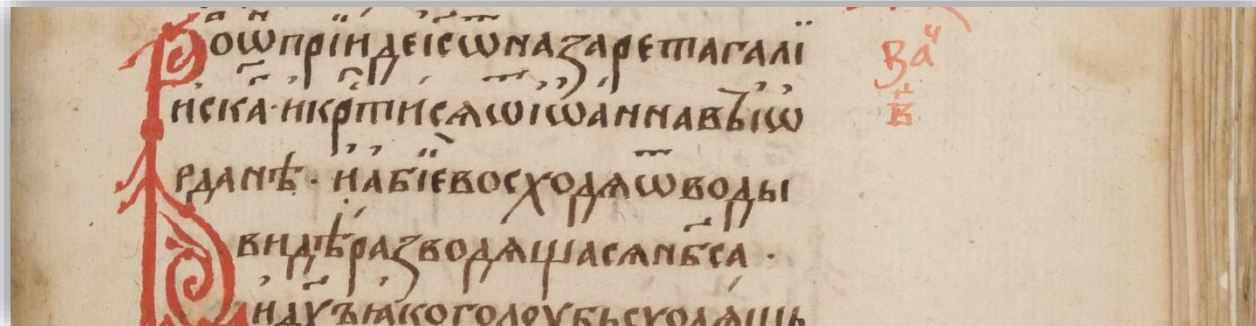 ѿ прїиде і҃с ѿ назарета галї
и́ска · и҆ кр҃тися ѿ ї҆ѡа́нна въ і҆ѡ
рданѣ · и҆ а҆бїе восходя ѿ воды
видѣ разводящася нб҃са ·
и҆ дх҃ъ ꙗ҆ко голоубь сходящь